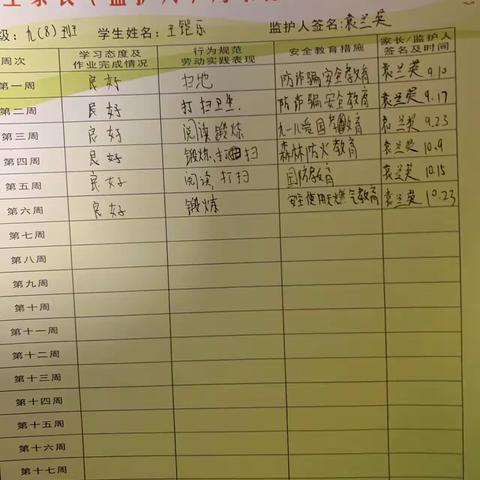 级:九(8)班 学生姓名:王铠乐 监护人签名:袁兰英
周次 学习态度及作业完成情况 行为规范劳动实践表现 安全教育措施 家长/监护人签名及时间
第一周 良好 扫地 防诈骗安全教育 袁兰英 9.10
第二周 良好 打扫卫生. 防诈骗安全教育 袁兰英 9.17
第三周 良好 阅读锻炼 九一八爱国教育 袁兰英 9.23
第四周 良好 锻炼.打扫 森林防火教育 袁兰英 10.9
第五周 良好 阅读,打扫 国防教育 袁兰英 10.15
第六周 良好 锻炼 安全使用天燃气教育 袁兰英 10.23
第七周
第八周
第九周
第十周
第十一周
第十二周
第十三周
第十四周
第十五周
第十六周
第十七周